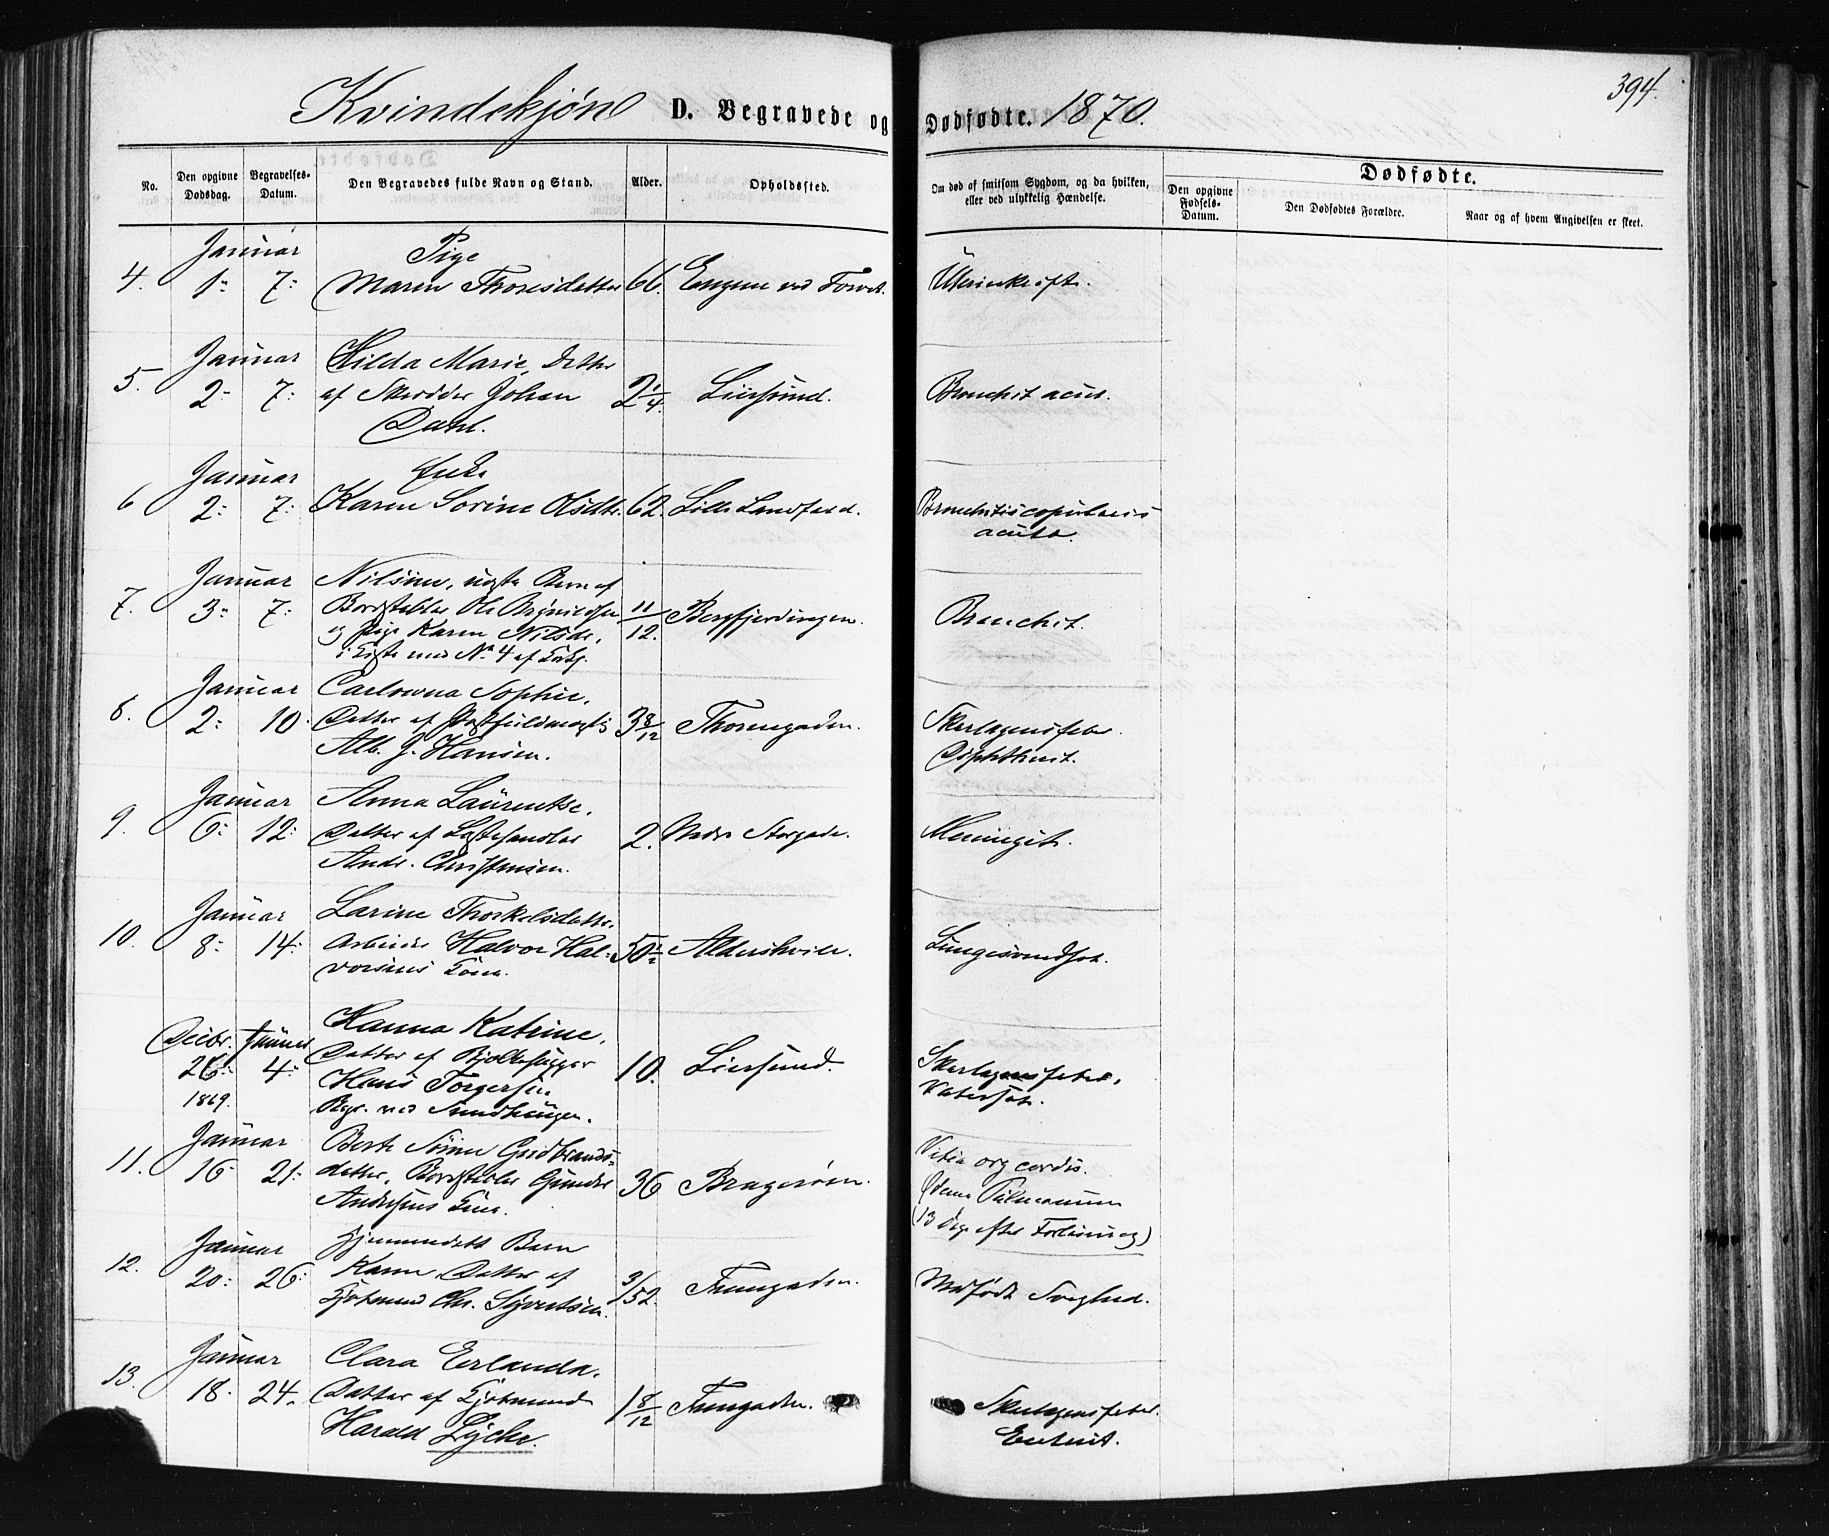 394.
Kvindekjøn D. Begravede og Dødfødte. 1870.
No.
Den opgivne Dødsdag.
Begravelses-Datum.
Den Begravedes fulde Navn og Stand.
Alder.
Opholdssted.
Om død af smitsom Sygdom, og da hvilken, eller ved ulykkelig Hændelse.
Dødfødte.
Den opgivne Fødsels-Datum.
Den Dødfødtes Forældre.
Naar og af hvem Angivelsen er skeet.
Januar Pige
4. 1: 7: Maren Thoresdatter 66. Engene ved Torvet. Uterinkræft.
Januar Hilda Marie, Datter
5. 2: 7: af Skrædder Johan 2 1/4. Liersund. Bronchit acut.
Dahl.
Januar Enke
6 2: 7: Karen Sovine Olsdtr. 62. Lille Landfald. Bronchitis capilaris
acuta.
Januar Nilsine, uægte Barn af
7. 3: 7: Bordstabler Ole Brynildsen 11/12. Bergfjerdingen. Bronchit.
og Pige Karen Nilsdr.
i Kiste med No 4 af
Januar Carlowna Sophie,
8. 2: 10: Datter af Postfuldmægtig 3 8/12 Thornegaden. Skarlagensfeber.
Alb. J. Hansen. Diphtherit.
Januar Anna Laurentse,
9. 6: 12: Datter af Løstehandler 2. Nedre Storgade. Meningit.
Andr. Christensen.
Januar Larine Thorkelsdatter,
10. 8: 14: Arbeider Halvor Hal- 50 1/2 Aldershvile. Lungesvindsot.
vorsens Kone.
Decbr. Januar Hanna Katrine,
26: 4: Datter af Bjelkehugger 10. Liersund. Skarlagensfeber.
1869. Hans Torgersen Vatersot.
Begr. ved Sundhaugen.
Januar Berte Sørine Gudbrands-
11. 16 21: datter, Bordstabler Gunder 36 Bragerøen. Vitia org cordis.
Andersens Kone. Ødema Pulmonum
(13 Dage efter Forløsning)
Januar Hjemmedøbt Barn
12. 20: 26: Karen Datter af 3/52. Tomtegaden. Medfødt Svaghed.
Kjøbmand Chr. Syvertsen.
Januar Clara Erlanda,
13. 18. 24. Datter af Kjøbmand 1 8/12 Skarlagensfeber.
Harald Lyche. Enterit.